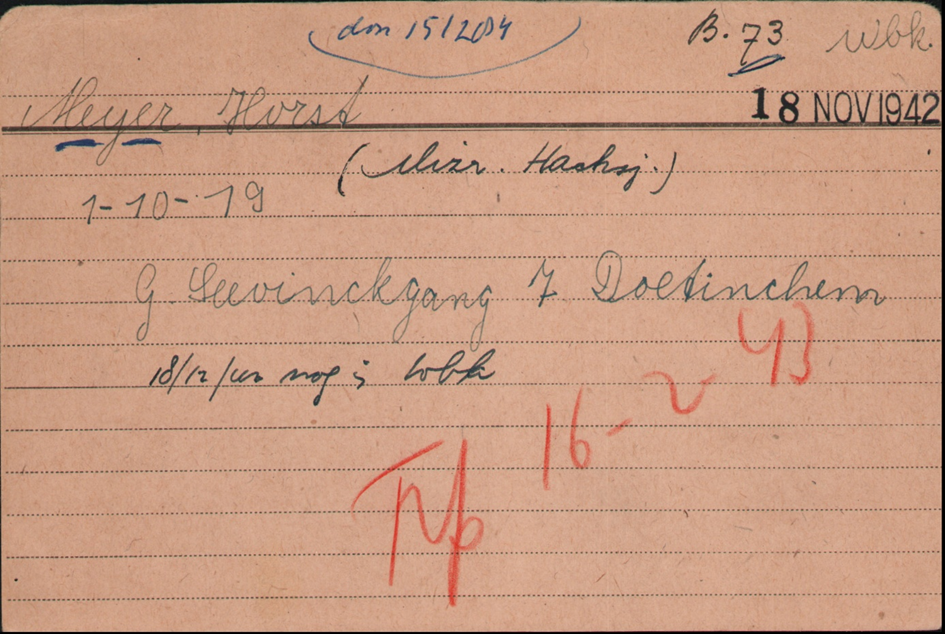 don 15/2084
B. 73 Wbk.
18 NOV 1942
Meyer, Horst
(Mizr. Hachsj.)
1-10-19
G. Seevinckgang 7 Doetinchem
18/12/42 nog in Wbk
16-2 43
Trp